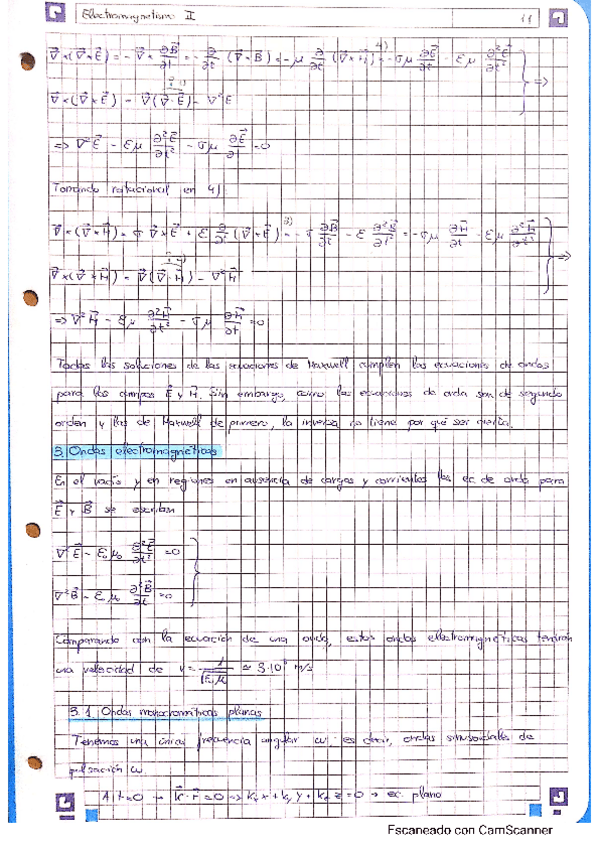 Electromagnetismo II
11
∇⃗×(∇⃗×E⃗) = -∇⃗×∂B⃗/∂t = -∂/∂t (∇⃗×B⃗) = -μ ∂/∂t (∇⃗×H⃗) 4)= -σμ ∂E⃗/∂t - εμ ∂²E⃗/∂t² } =>
∇⃗×(∇⃗×E⃗) = ∇⃗(∇⃗·E⃗) - ∇²E
=> ∇²E⃗ - εμ ∂²E⃗/∂t² - σμ ∂E⃗/∂t = 0
Tomando rotacional en 4)
∇⃗×(∇⃗×H⃗) = σ ∇⃗×E⃗ + ε ∂/∂t (∇⃗×E⃗) 3)= -σ ∂B⃗/∂t - ε ∂²B⃗/∂t² = -σμ ∂H⃗/∂t - εμ ∂²H⃗/∂t² } =>
∇⃗×(∇⃗×H⃗) = ∇⃗(∇⃗·H⃗) - ∇²H⃗
=> ∇²H⃗ - εμ ∂²H⃗/∂t² - σμ ∂H⃗/∂t = 0
Todas las soluciones de las ecuaciones de Maxwell cumplen las ecuaciones de ondas
para los campos E⃗ y H⃗. Sin embargo, como las ecuaciones de onda son de segundo
orden y las de Maxwell de primero, la inversa no tiene por qué ser cierta.
3. Ondas electromagnéticas
En el vacío y en regiones en ausencia de cargas y corrientes las ec. de onda para
E⃗ y B⃗ se escriben
∇²E⃗ - ε₀μ₀ ∂²E⃗/∂t² = 0
∇²B⃗ - ε₀μ₀ ∂²B⃗/∂t = 0
Comparando con la ecuación de una onda, estas ondas electromagnéticas tendrán
una velocidad de v = 1/√ε₀μ ≃ 3·10⁸ m/s
3.1. Ondas monocromáticas planas
Tenemos una única frecuencia angular ω; es decir, ondas sinusoidales de
pulsación ω.
A t=0 → k⃗·r⃗ = 0 => kₓx + k_y y + k_z z = 0 → ec. plano
Escaneado con CamScanner